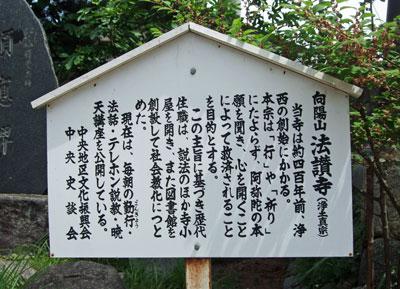 向陽山 法讃寺 (浄土真宗)
当寺は約四百年前、浄
西の創始にかかる。
本宗は「行」や「祈り」
にたよらず、阿弥陀の本
願を聞き、心を開くこと
によって救済されること
を目的とする。
この主旨に基づき歴代
住職は、説法のほか寺小
屋を開き、また図書館を
創設して社会教化につと
めた。
現在は、毎朝の勤行・
法話・テレホン説教・暁
天講座を公開している。
中央地区文化振興会
中央史談会